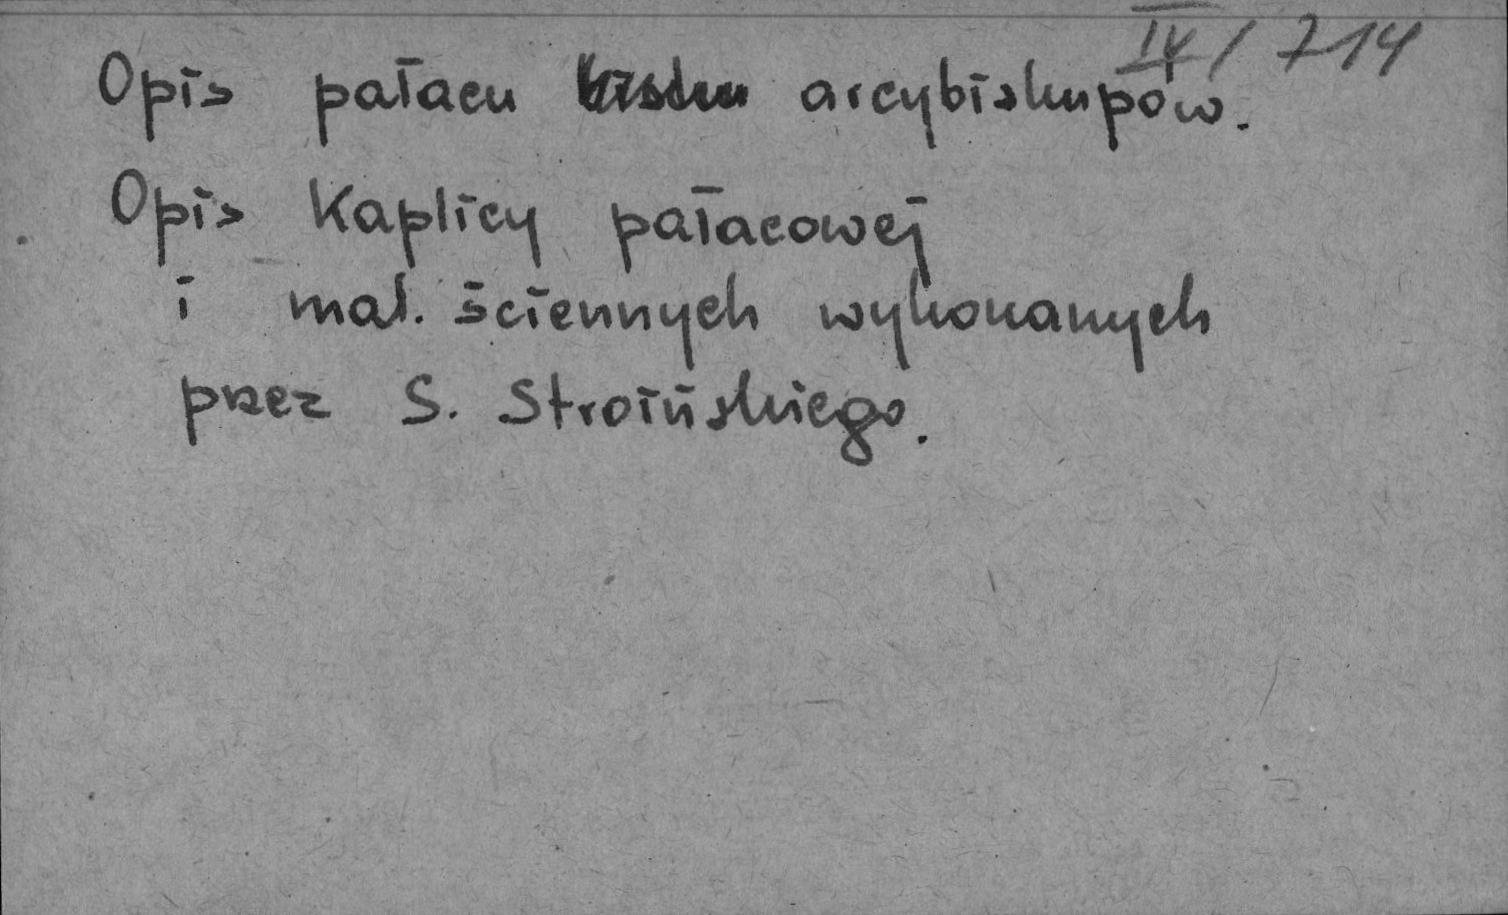 IV/714
Opis pałacu arcybiskupów.
Opis Kaplicy pałacowej
i mal. ściennych wykonanych
przez S. Stroińskiego.